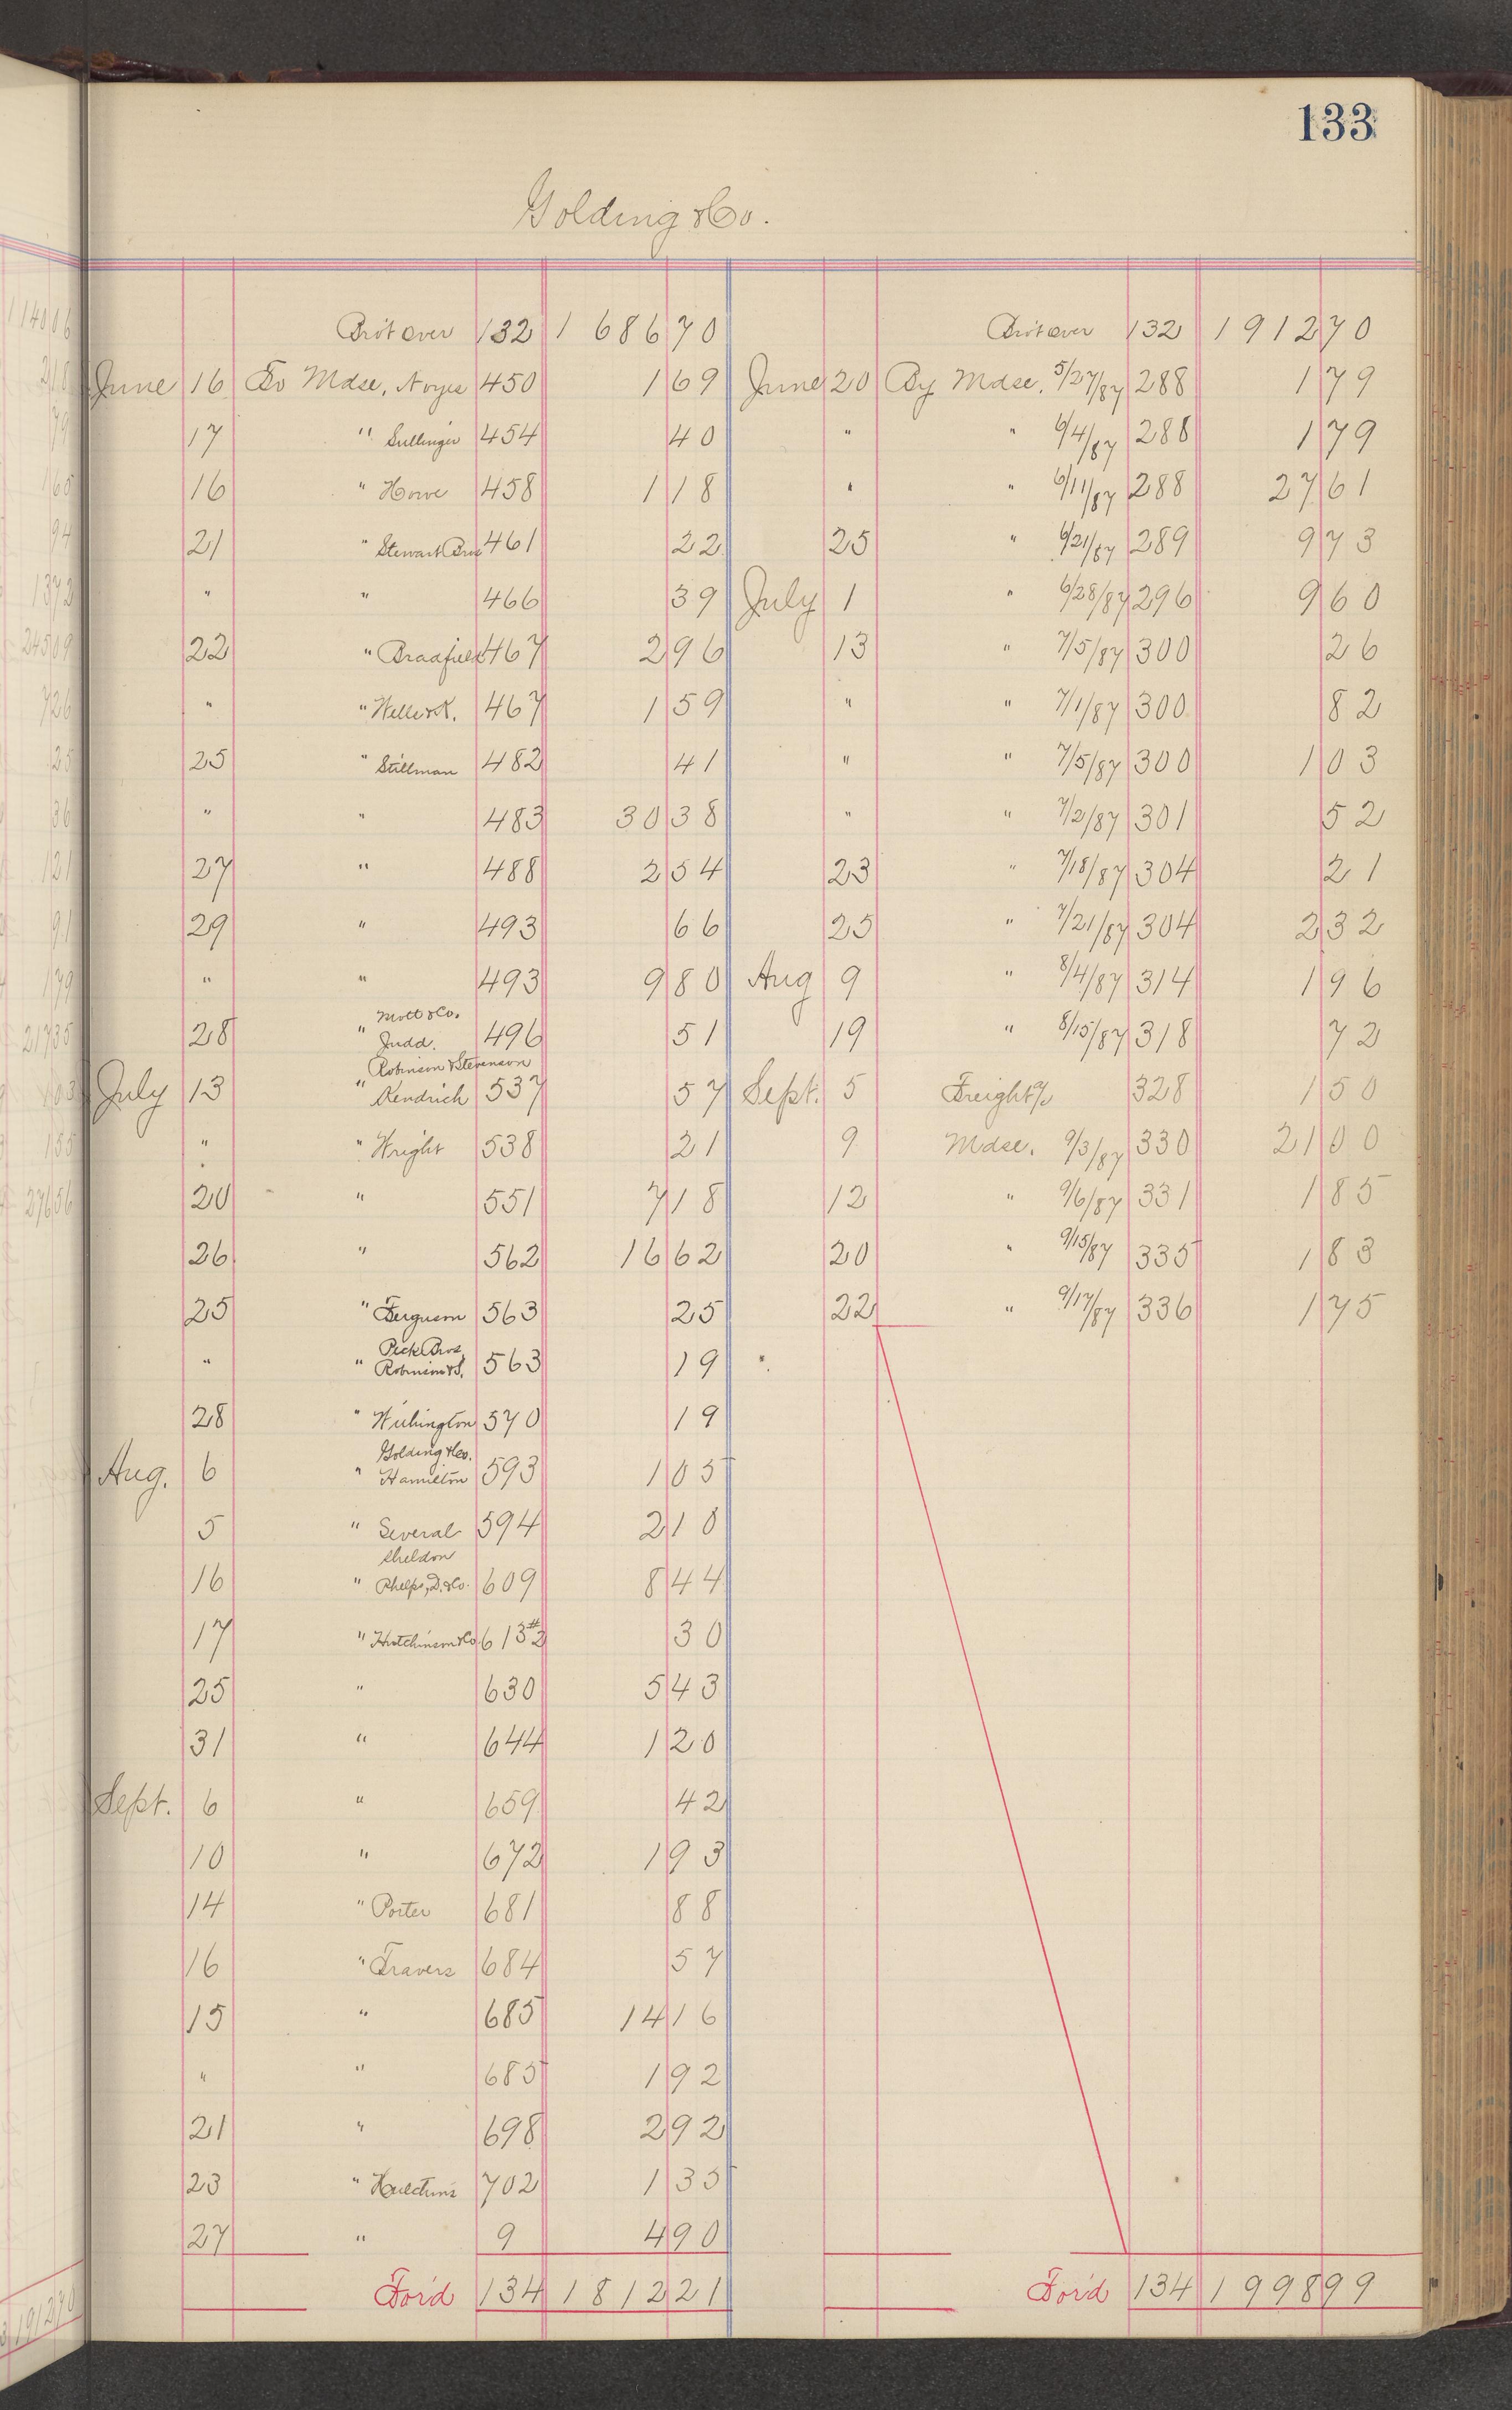 133
Golding & Co.
Bro't over 132 1 686 70 Bro't over 132 1 912 70
June 16 To Mdse, Noyes 450 1 69 June 20 By Mdse. 5/27/87 288 1 79
17 " Sullinger 454 40 " " 6/4/87 288 1 79
16 " Howe 458 1 18 " " 6/11/87 288 27 61
21 " Stewart Bros 461 22 25 " 6/21/87 289 9 73
" " 466 39 July 1 " 6/28/87 296 9 60
22 " Bradfield 467 2 96 13 " 7/5/87 300 26
" " Welle & K. 467 1 59 " " 7/1/87 300 82
25 " Stillman 482 41 " " 7/5/87 300 1 03
" " 483 30 38 " " 7/2/87 301 52
27 " 488 2 54 23 " 7/18/87 304 21
29 " 493 66 25 " 7/21/87 304 2 32
" " 493 9 80 Aug 9 " 8/4/87 314 1 96
Mott & Co.
28 " Judd. 496 51 19 " 8/15/87 318 72
Robinson & Stevenson
July 13 " Kendrich 537 57 Sept. 5 Freight % 328 1 50
" " Wright 538 21 9 Mdse. 9/3/87 330 21 00
20 " 551 7 18 12 " 9/6/87 331 1 85
26. " 562 16 62 20 " 9/15/87 335 1 83
25 " Ferguson 563 25 22 " 9/17/87 336 1 75
Peck Bros.
" " Robinson & S. 563 19 "
28 " Withington 570 19
Golding & Co.
Aug. 6 " Hamilton 593 1 05
5 " Several 594 2 10
Sheldon
16 " Phelps, D. & Co. 609 8 44
17 " Hutchinson & Co. 613 #2 30
25 " 630 5 43
31 " 644 1 20
Sept. 6 " 659 42
10 " 672 1 93
14 " Porter 681 88
16 " Travers 684 57
15 " 685 14 16
" " 685 1 92
21 " 698 2 92
23 " 702 1 35
27 " 9 4 90
For'd 134 1 812 21 For'd 134 1 998 99